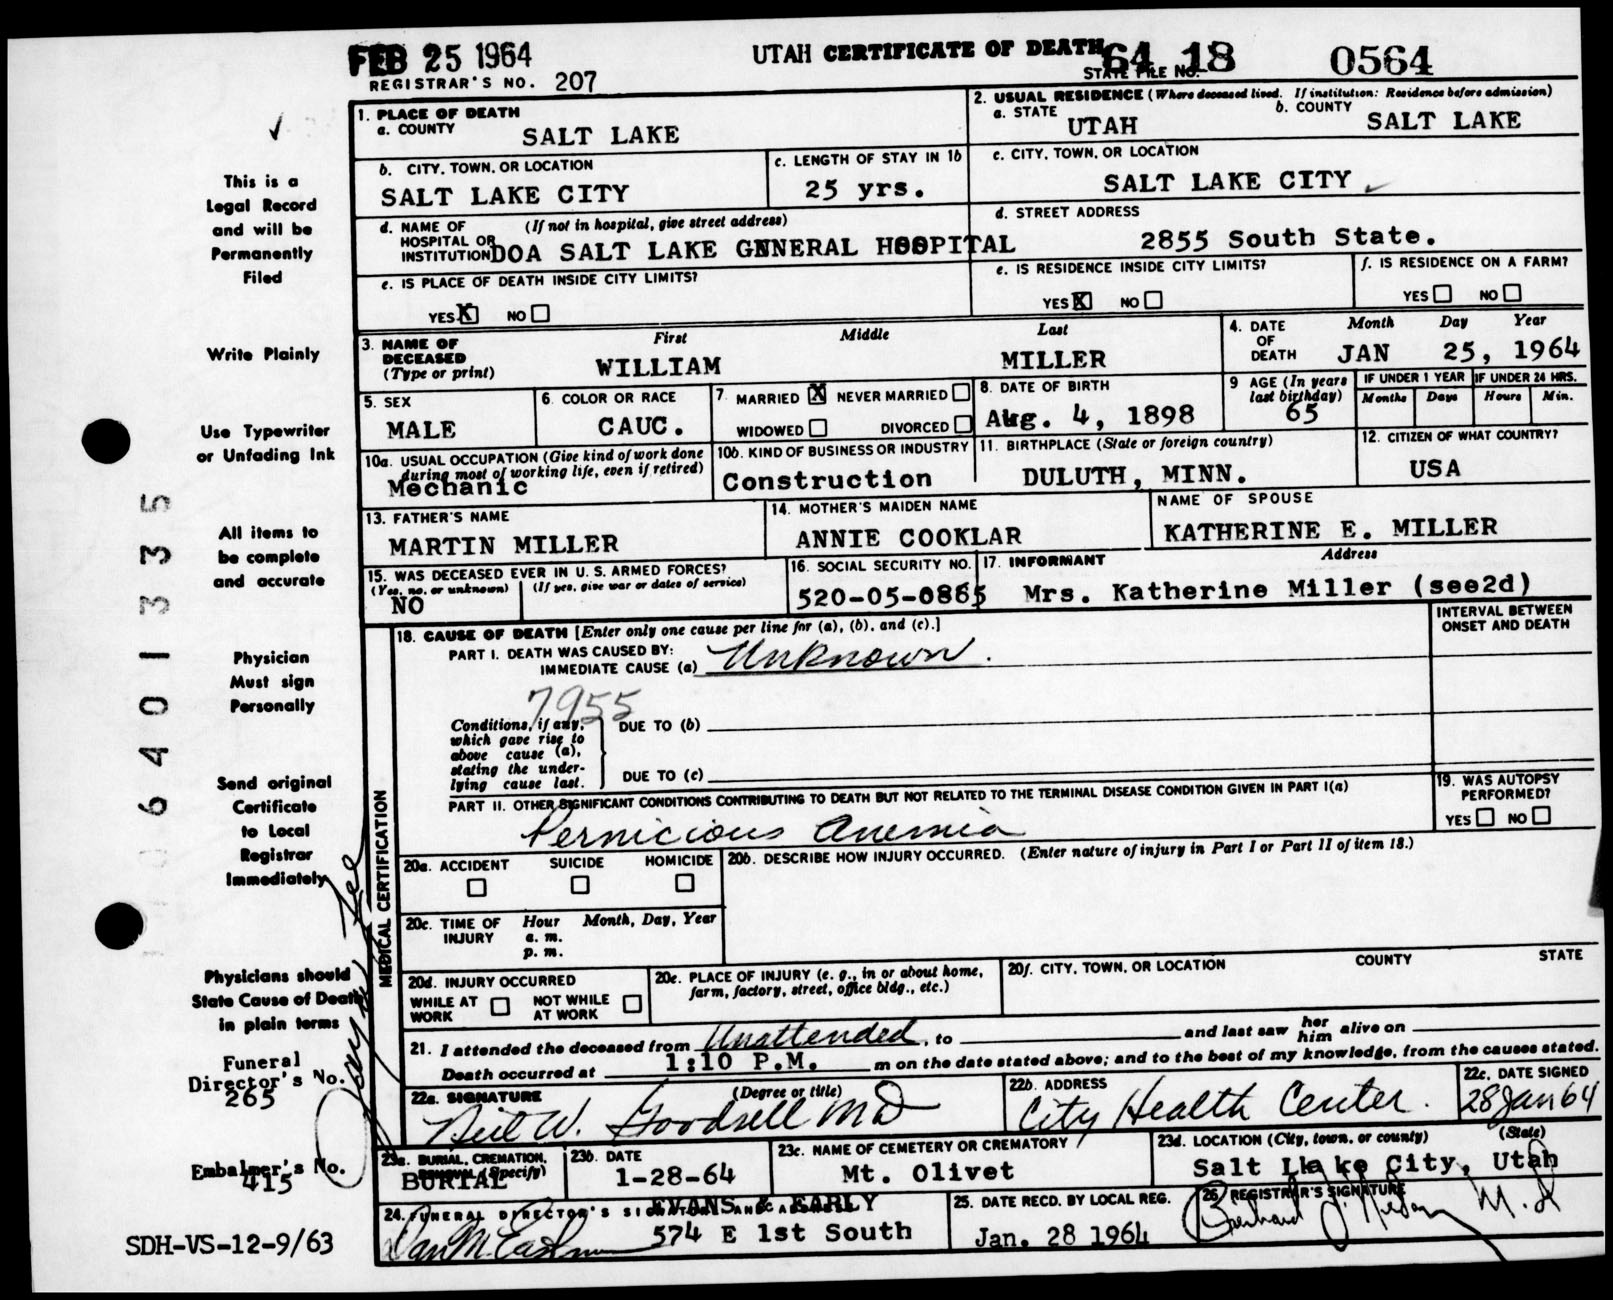 FEB 25 1964
UTAH CERTIFICATE OF DEATH
64 18 0564
STATE FILE NO.
REGISTRAR'S NO. 207
1. PLACE OF DEATH
a. COUNTY SALT LAKE
2. USUAL RESIDENCE (Where deceased lived. If institution: Residence before admission)
a. STATE UTAH b. COUNTY SALT LAKE
b. CITY, TOWN, OR LOCATION SALT LAKE CITY
c. LENGTH OF STAY IN 1b 25 yrs.
c. CITY, TOWN, OR LOCATION SALT LAKE CITY
d. NAME OF HOSPITAL OR INSTITUTION (If not in hospital, give street address)
DOA SALT LAKE GENERAL HOSPITAL
d. STREET ADDRESS 2855 South State.
e. IS PLACE OF DEATH INSIDE CITY LIMITS?
YES X NO
e. IS RESIDENCE INSIDE CITY LIMITS?
YES X NO
f. IS RESIDENCE ON A FARM?
YES NO
3. NAME OF DECEASED (Type or print)
First Middle Last
WILLIAM MILLER
4. DATE OF DEATH Month Day Year
JAN 25, 1964
5. SEX MALE
6. COLOR OR RACE CAUC.
7. MARRIED X NEVER MARRIED
WIDOWED DIVORCED
8. DATE OF BIRTH Aug. 4, 1898
9 AGE (In years last birthday) 65
IF UNDER 1 YEAR Months Days
IF UNDER 24 HRS. Hours Min.
10a. USUAL OCCUPATION (Give kind of work done during most of working life, even if retired)
Mechanic
10b. KIND OF BUSINESS OR INDUSTRY Construction
11. BIRTHPLACE (State or foreign country) DULUTH, MINN.
12. CITIZEN OF WHAT COUNTRY? USA
13. FATHER'S NAME MARTIN MILLER
14. MOTHER'S MAIDEN NAME ANNIE COOKLAR
NAME OF SPOUSE KATHERINE E. MILLER
15. WAS DECEASED EVER IN U. S. ARMED FORCES?
(Yes, no, or unknown) (If yes, give war or dates of service)
NO
16. SOCIAL SECURITY NO. 520-05-0865
17. INFORMANT Address
Mrs. Katherine Miller (see2d)
MEDICAL CERTIFICATION
18. CAUSE OF DEATH [Enter only one cause per line for (a), (b), and (c).]
INTERVAL BETWEEN ONSET AND DEATH
PART I. DEATH WAS CAUSED BY:
IMMEDIATE CAUSE (a) Unknown.
7955
Conditions, if any, which gave rise to above cause (a), stating the underlying cause last.
DUE TO (b)
DUE TO (c)
PART II. OTHER SIGNIFICANT CONDITIONS CONTRIBUTING TO DEATH BUT NOT RELATED TO THE TERMINAL DISEASE CONDITION GIVEN IN PART I(a)
Pernicious Anemia
19. WAS AUTOPSY PERFORMED?
YES NO
20a. ACCIDENT SUICIDE HOMICIDE
20b. DESCRIBE HOW INJURY OCCURRED. (Enter nature of injury in Part I or Part II of item 18.)
20c. TIME OF INJURY Hour Month, Day, Year
a. m.
p. m.
20d. INJURY OCCURRED
WHILE AT WORK NOT WHILE AT WORK
20e. PLACE OF INJURY (e. g., in or about home, farm, factory, street, office bldg., etc.)
20f. CITY, TOWN, OR LOCATION COUNTY STATE
21. I attended the deceased from Unattended, to and last saw her him alive on
Death occurred at 1:10 P.M. m on the date stated above; and to the best of my knowledge, from the causes stated.
22a. SIGNATURE (Degree or title)
Neil W. Goodsell MD
22b. ADDRESS City Health Center.
22c. DATE SIGNED 28 Jan 64
23a. BURIAL, CREMATION, REMOVAL (Specify) BURIAL
23b. DATE 1-28-64
23c. NAME OF CEMETERY OR CREMATORY Mt. Olivet
23d. LOCATION (City, town, or county) (State)
Salt Lake City, Utah
24. FUNERAL DIRECTOR'S SIGNATURE AND ADDRESS
EVANS & EARLY
574 E 1st South
25. DATE RECD. BY LOCAL REG. Jan. 28 1964
26. REGISTRAR'S SIGNATURE
M.D
This is a
Legal Record
and will be
Permanently
Filed
Write Plainly
Use Typewriter
or Unfading Ink
All items to
be complete
and accurate
Physician
Must sign
Personally
Send original
Certificate
to Local
Registrar
Immediately
Physicians should
State Cause of Death
in plain terms
Funeral
Director's No.
265
Embalmer's No.
415
SDH-VS-12-9/63
6401335